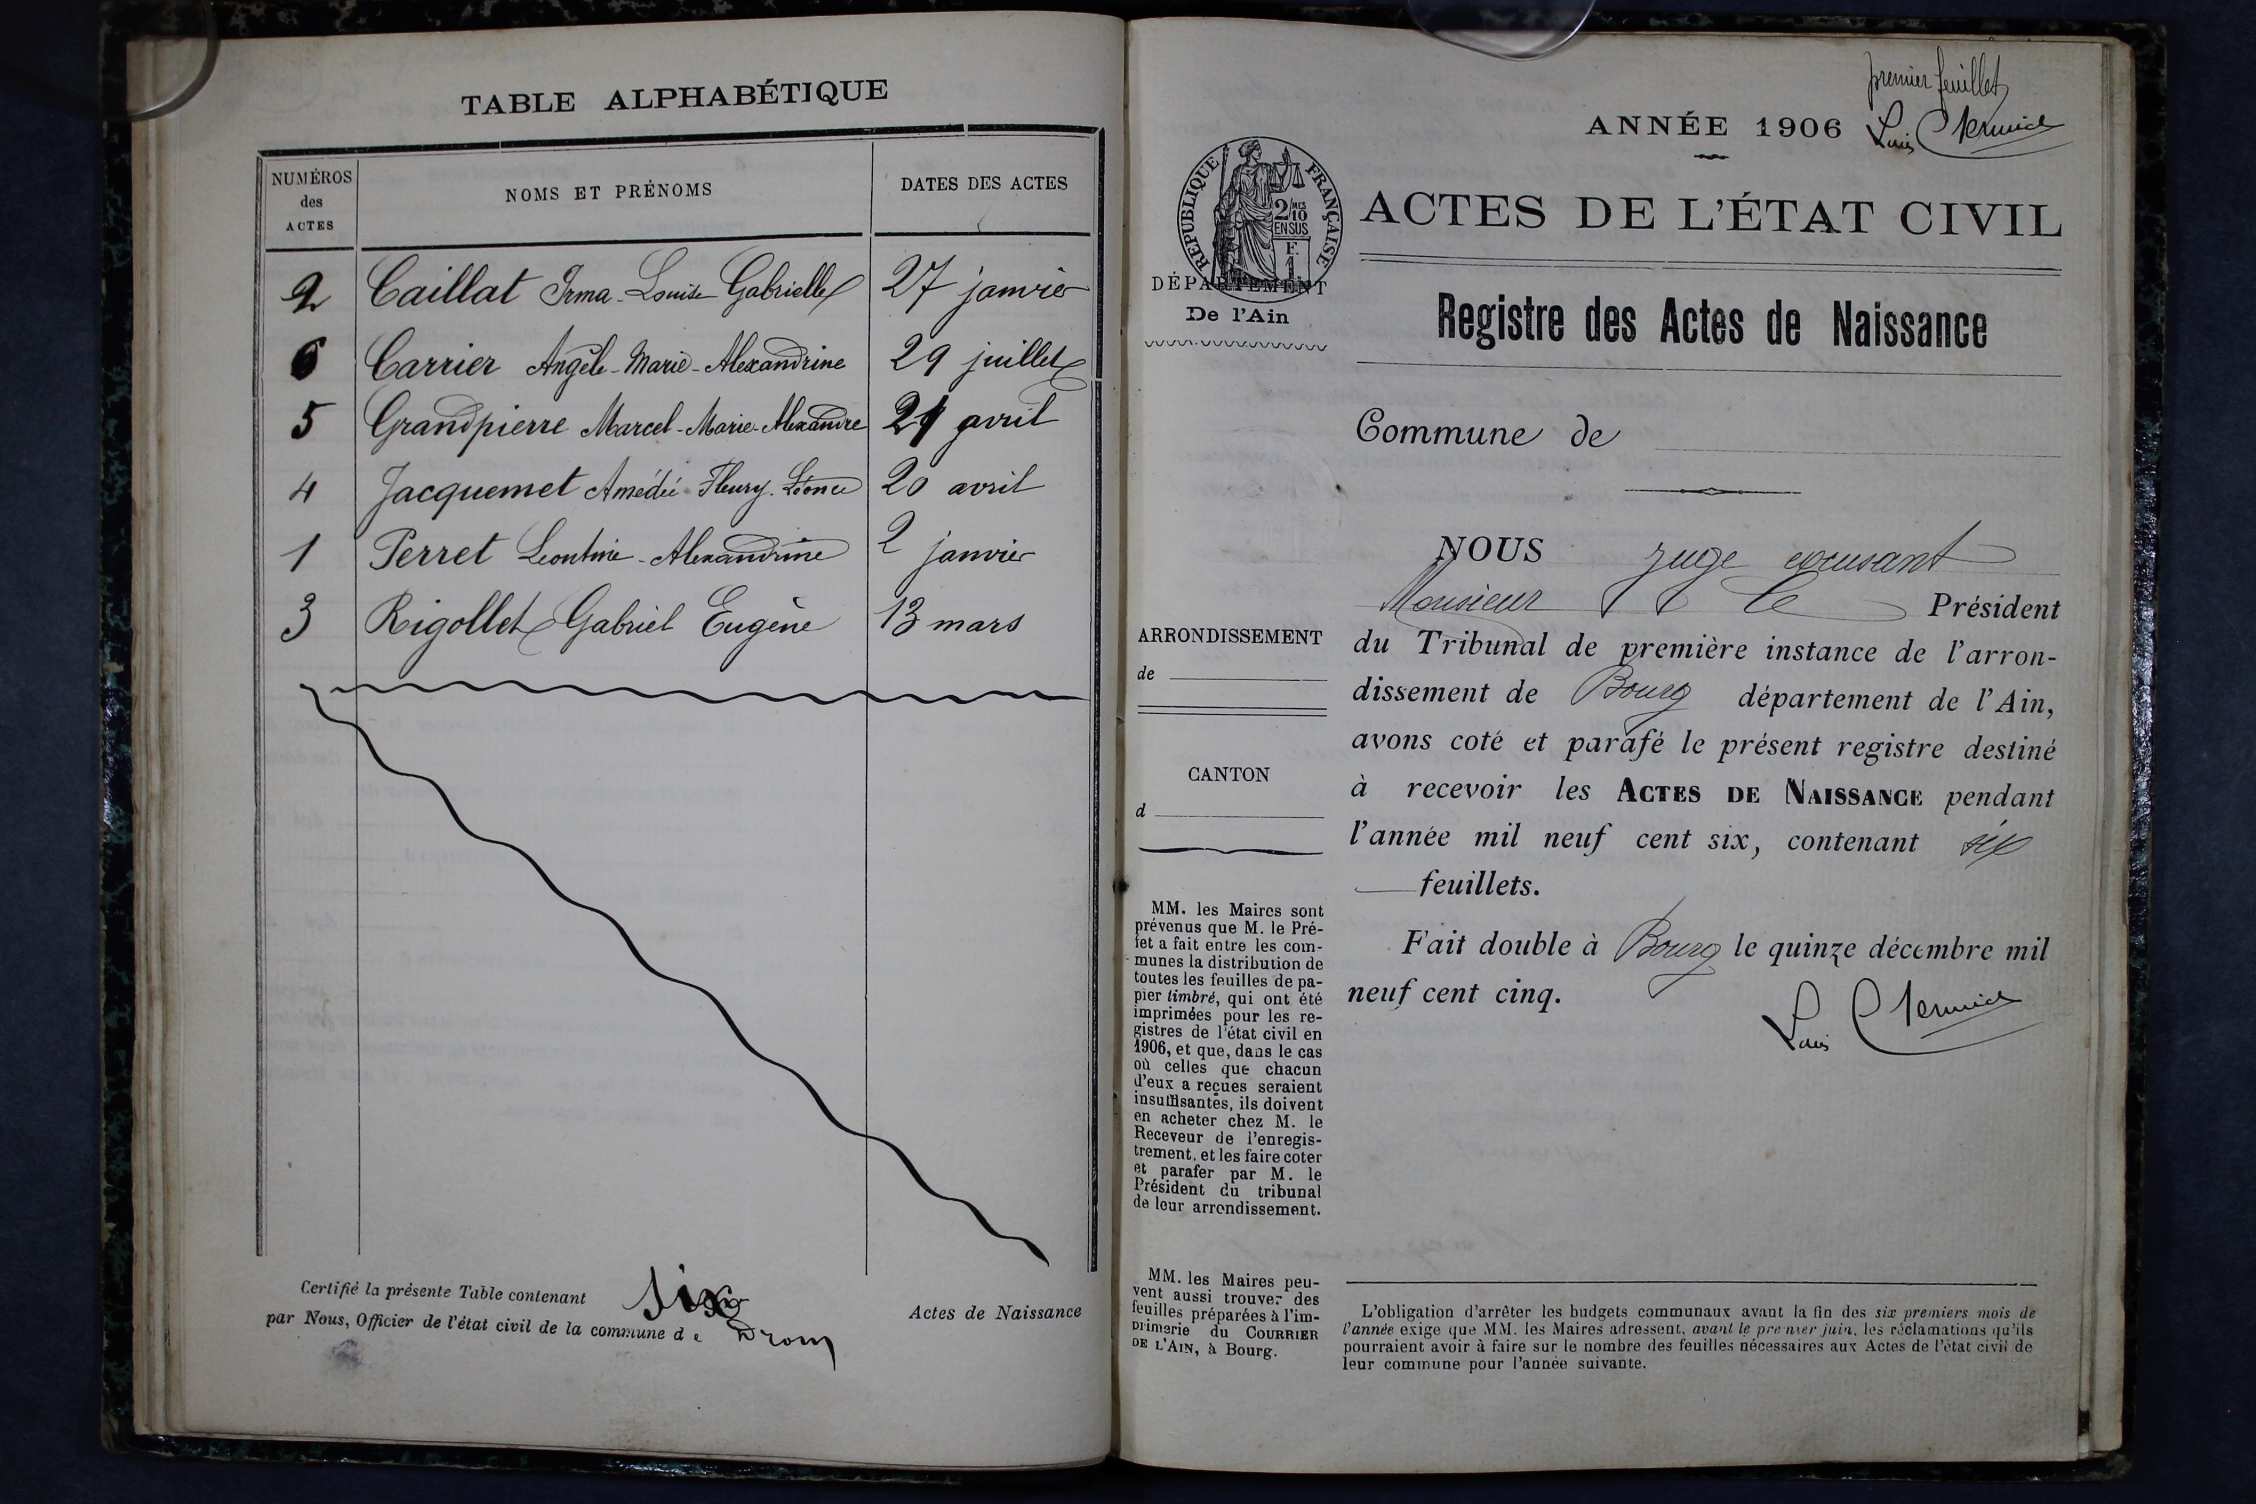 TABLE ALPHABÉTIQUE
NUMÉROS
des
ACTES
NOMS ET PRÉNOMS
DATES DES ACTES
2 Caillat Irma-Louise Gabrielle 27 janvier
6 Carrier Angèle-Marie-Alexandrine 29 juillet
5 Grandpierre Marcel-Marie-Alexandre 21 avril
4 Jacquemet Amédée-Fleury-Léonce 20 avril
1 Perret Leontine-Alexandrine 2 janvier
3 Rigollet Gabriel Eugène 13 mars
Certifié la présente Table contenant six Actes de Naissance
par Nous, Officier de l'état civil de la commune de Drom
premier feuillet
ANNÉE 1906
Louis
RÉPUBLIQUE FRANÇAISE
2/10
MES
EN SUS
F.
1
ACTES DE L'ÉTAT CIVIL
DÉPARTEMENT
De l'Ain
Registre des Actes de Naissance
Commune de
NOUS juge excusant
Monsieur le Président
du Tribunal de première instance de l'arron-
dissement de Bourg département de l'Ain,
avons coté et parafé le présent registre destiné
à recevoir les ACTES DE NAISSANCE pendant
l'année mil neuf cent six, contenant six
feuillets.
Fait double à Bourg le quinze décembre mil
neuf cent cinq.
Louis
ARRONDISSEMENT
de
CANTON
d
MM. les Maires sont
prévenus que M. le Pré-
fet a fait entre les com-
munes la distribution de
toutes les feuilles de pa-
pier timbré, qui ont été
imprimées pour les re-
gistres de l'état civil en
1906, et que, dans le cas
où celles que chacun
d'eux a reçues seraient
insuffisantes, ils doivent
en acheter chez M. le
Receveur de l'enregis-
trement, et les faire coter
et parafer par M. le
Président du tribunal
de leur arrondissement.
MM. les Maires peu-
vent aussi trouver des
feuilles préparées à l'im-
primerie du COURRIER
DE L'AIN, à Bourg.
L'obligation d'arrêter les budgets communaux avant la fin des six premiers mois de
l'année exige que MM. les Maires adressent, avant le premier juin, les réclamations qu'ils
pourraient avoir à faire sur le nombre des feuilles nécessaires aux Actes de l'état civil de
leur commune pour l'année suivante.